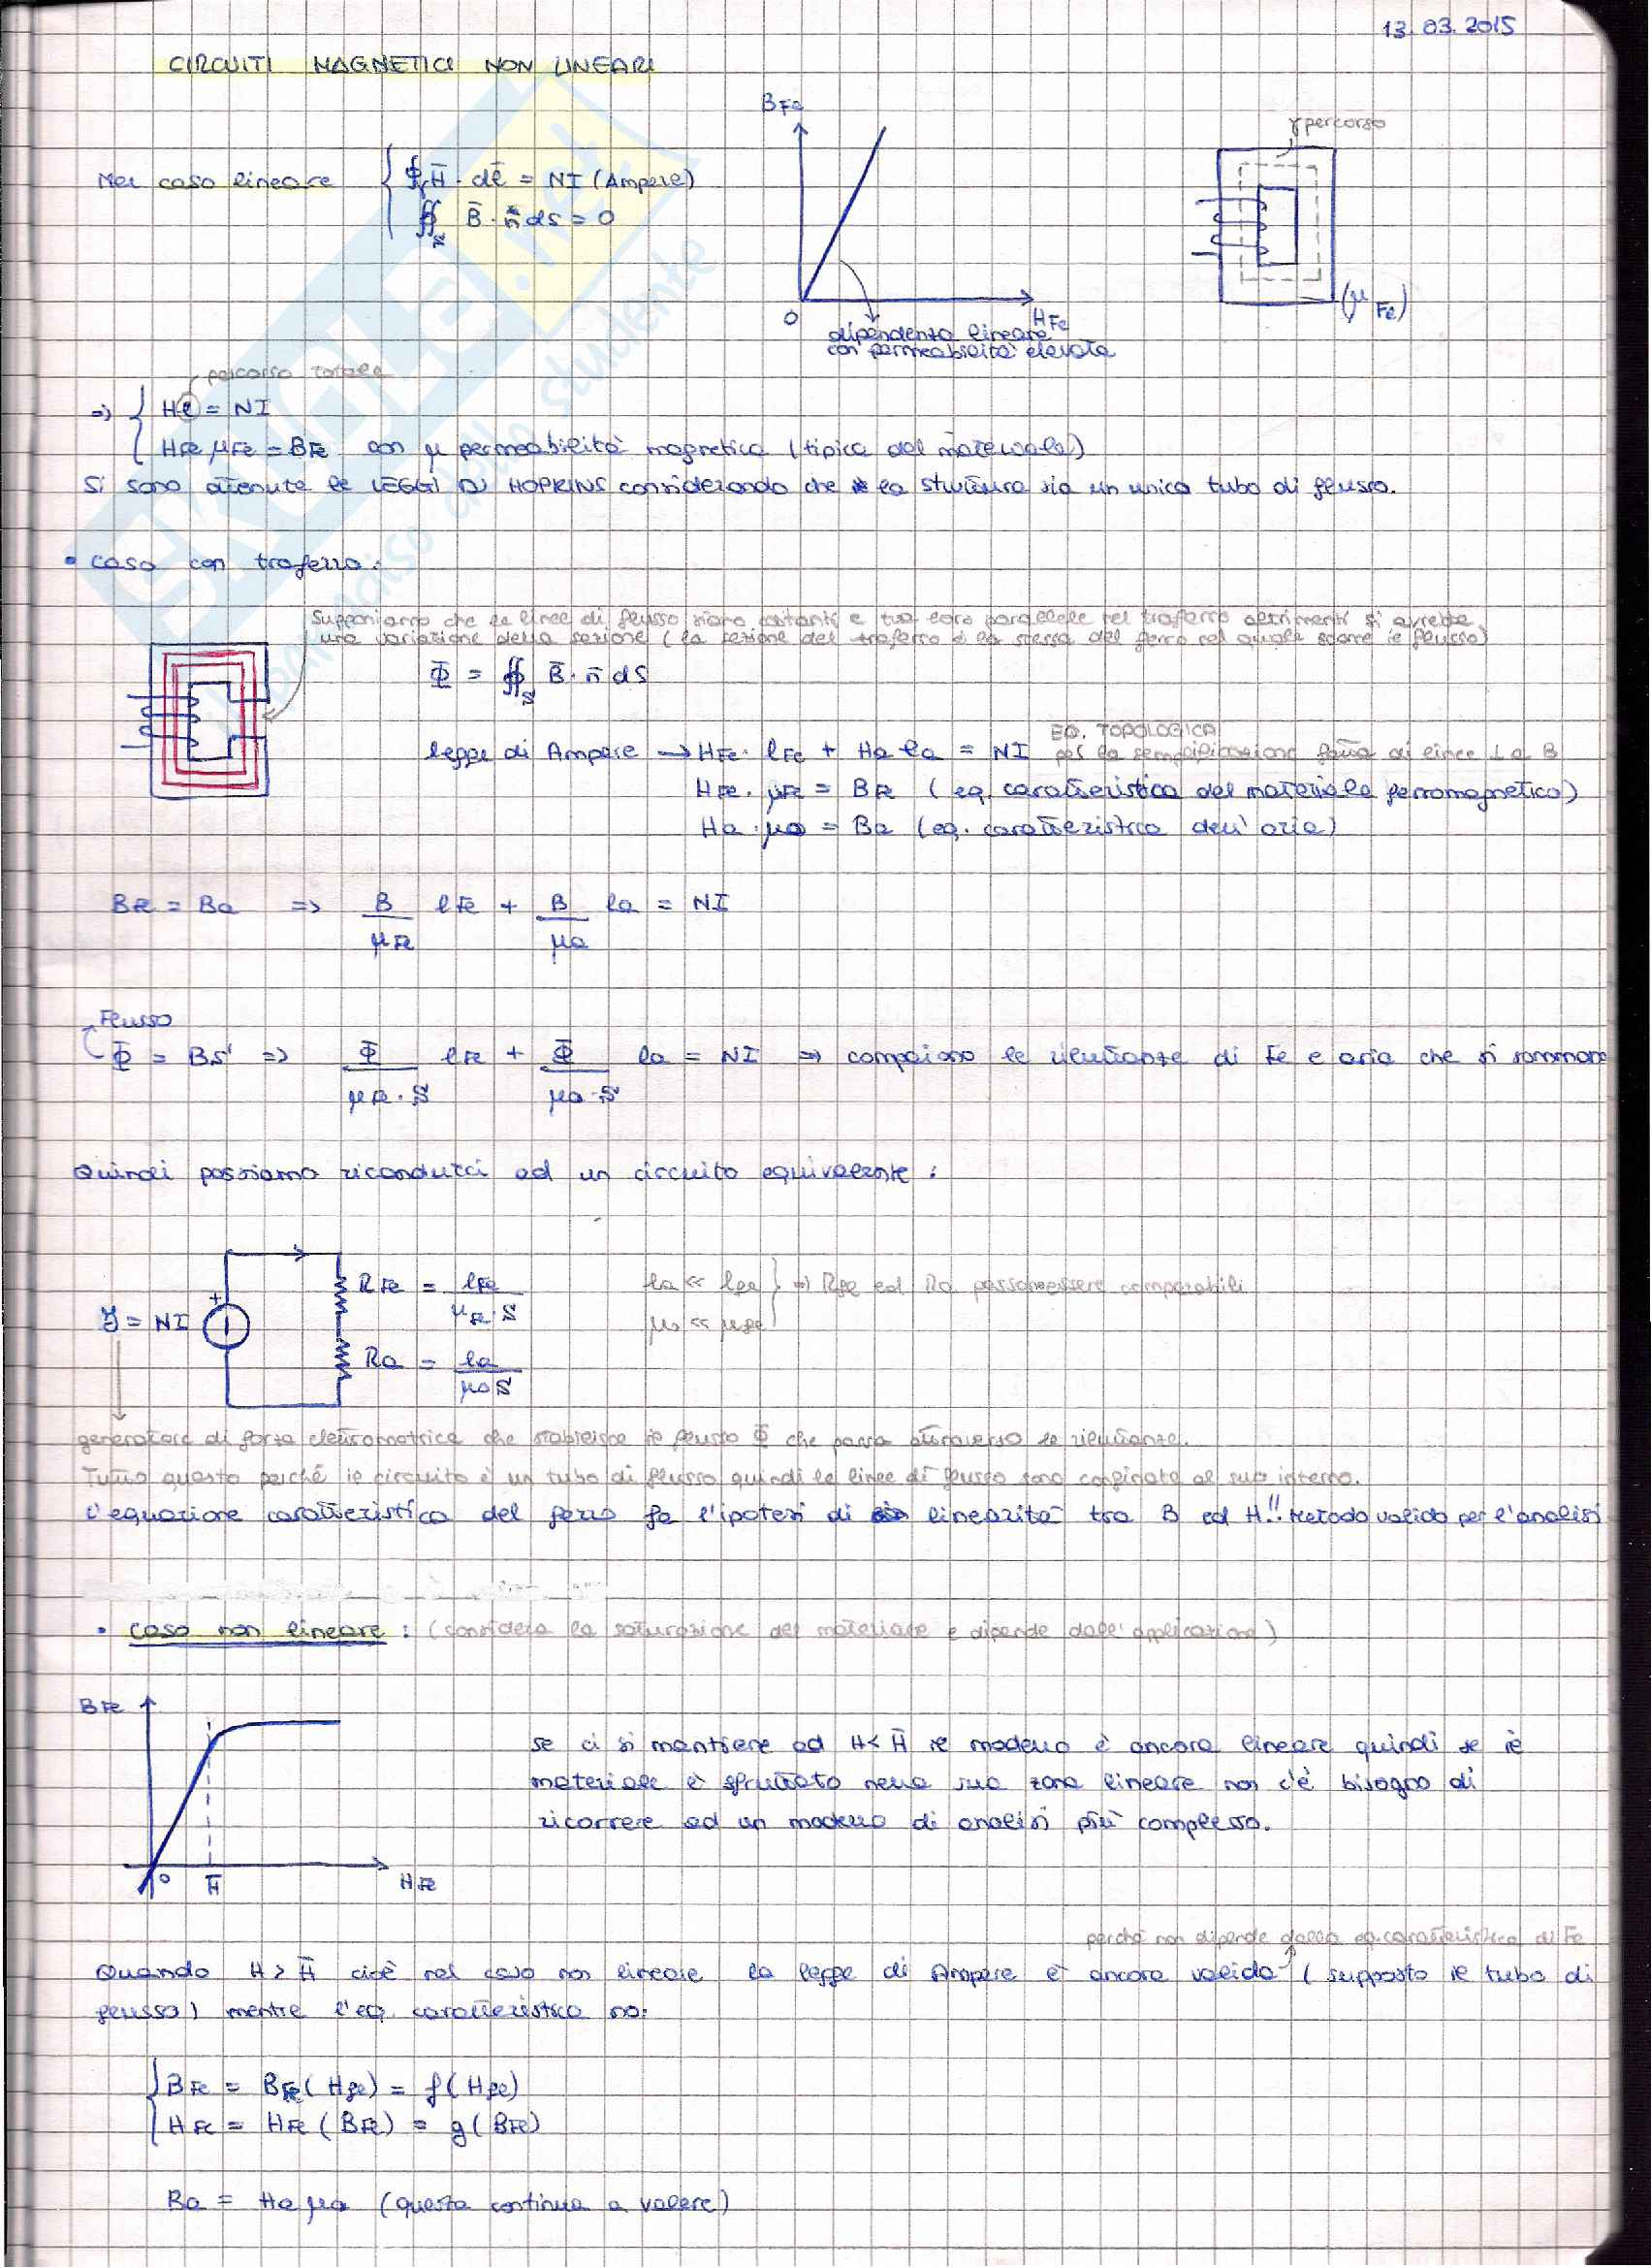 13.03.2015
CIRCUITI MAGNETICI NON LINEARI
BFe
γ percorso
Nel caso lineare { ∮γ H̄ · dl̄ = NI (Ampere)
∯Σ B̄ · n̄ dS = 0
(μFe)
O HFe
dipendenza lineare
con permeabilità elevata
percorso totale
=> { Hl = NI
HFe μFe = BFe con μ permeabilità magnetica (tipica del materiale)
Si sono ottenute le LEGGI DI HOPKINS considerando che la struttura sia un unico tubo di flusso.
• caso con traferro:
Supponiamo che le linee di flusso siano costanti e tra loro parallele nel traferro altrimenti si avrebbe
una variazione della sezione (la sezione del traferro è la stessa del ferro nel quale scorre il flusso)
Φ = ∯S B̄ · n̄ dS
EQ. TOPOLOGICA
legge di Ampere → HFe · lFe + Ha la = NI per la semplificazione fatta di linee ⊥ a B
HFe · μFe = BFe (eq. caratteristica del materiale ferromagnetico)
Ha · μa = Ba (eq. caratteristica dell'aria)
BFe = Ba => B/μFe lFe + B/μa la = NI
Flusso
Φ = BS => Φ/μFe·S lFe + Φ/μa·S la = NI => compaiono le riluttanze di Fe e aria che si sommano
Quindi possiamo ricondurci ad un circuito equivalente:
RFe = lFe/μFe·S la << lFe } => RFe ed Ra possono essere comparabili
+
ℑ = NI μ0 << μFe
Ra = la/μ0S
generatore di forza elettromotrice che stabilisce il flusso Φ che passa attraverso le riluttanze.
Tutto questo perché il circuito è un tubo di flusso quindi le linee di flusso sono confinate al suo interno.
L'equazione caratteristica del ferro fa l'ipotesi di linearità tra B ed H!! Metodo valido per l'analisi
• caso non lineare: (considera la saturazione del materiale e dipende dall'applicazione)
BFe
se ci si mantiene ad H< H̄ il modello è ancora lineare quindi se il
materiale è sfruttato nella sua zona lineare non c'è bisogno di
ricorrere ad un modello di analisi più complesso.
O H̄ HFe
perché non dipende dalla eq. caratteristica di Fe
Quando H > H̄ cioè nel caso non lineare la legge di Ampere è ancora valida (supposto il tubo di
flusso) mentre l'eq. caratteristica no:
{ BFe = BFe(HFe) = f(HFe)
HFe = HFe(BFe) = g(BFe)
Ba = Ha μa (questa continua a valere)